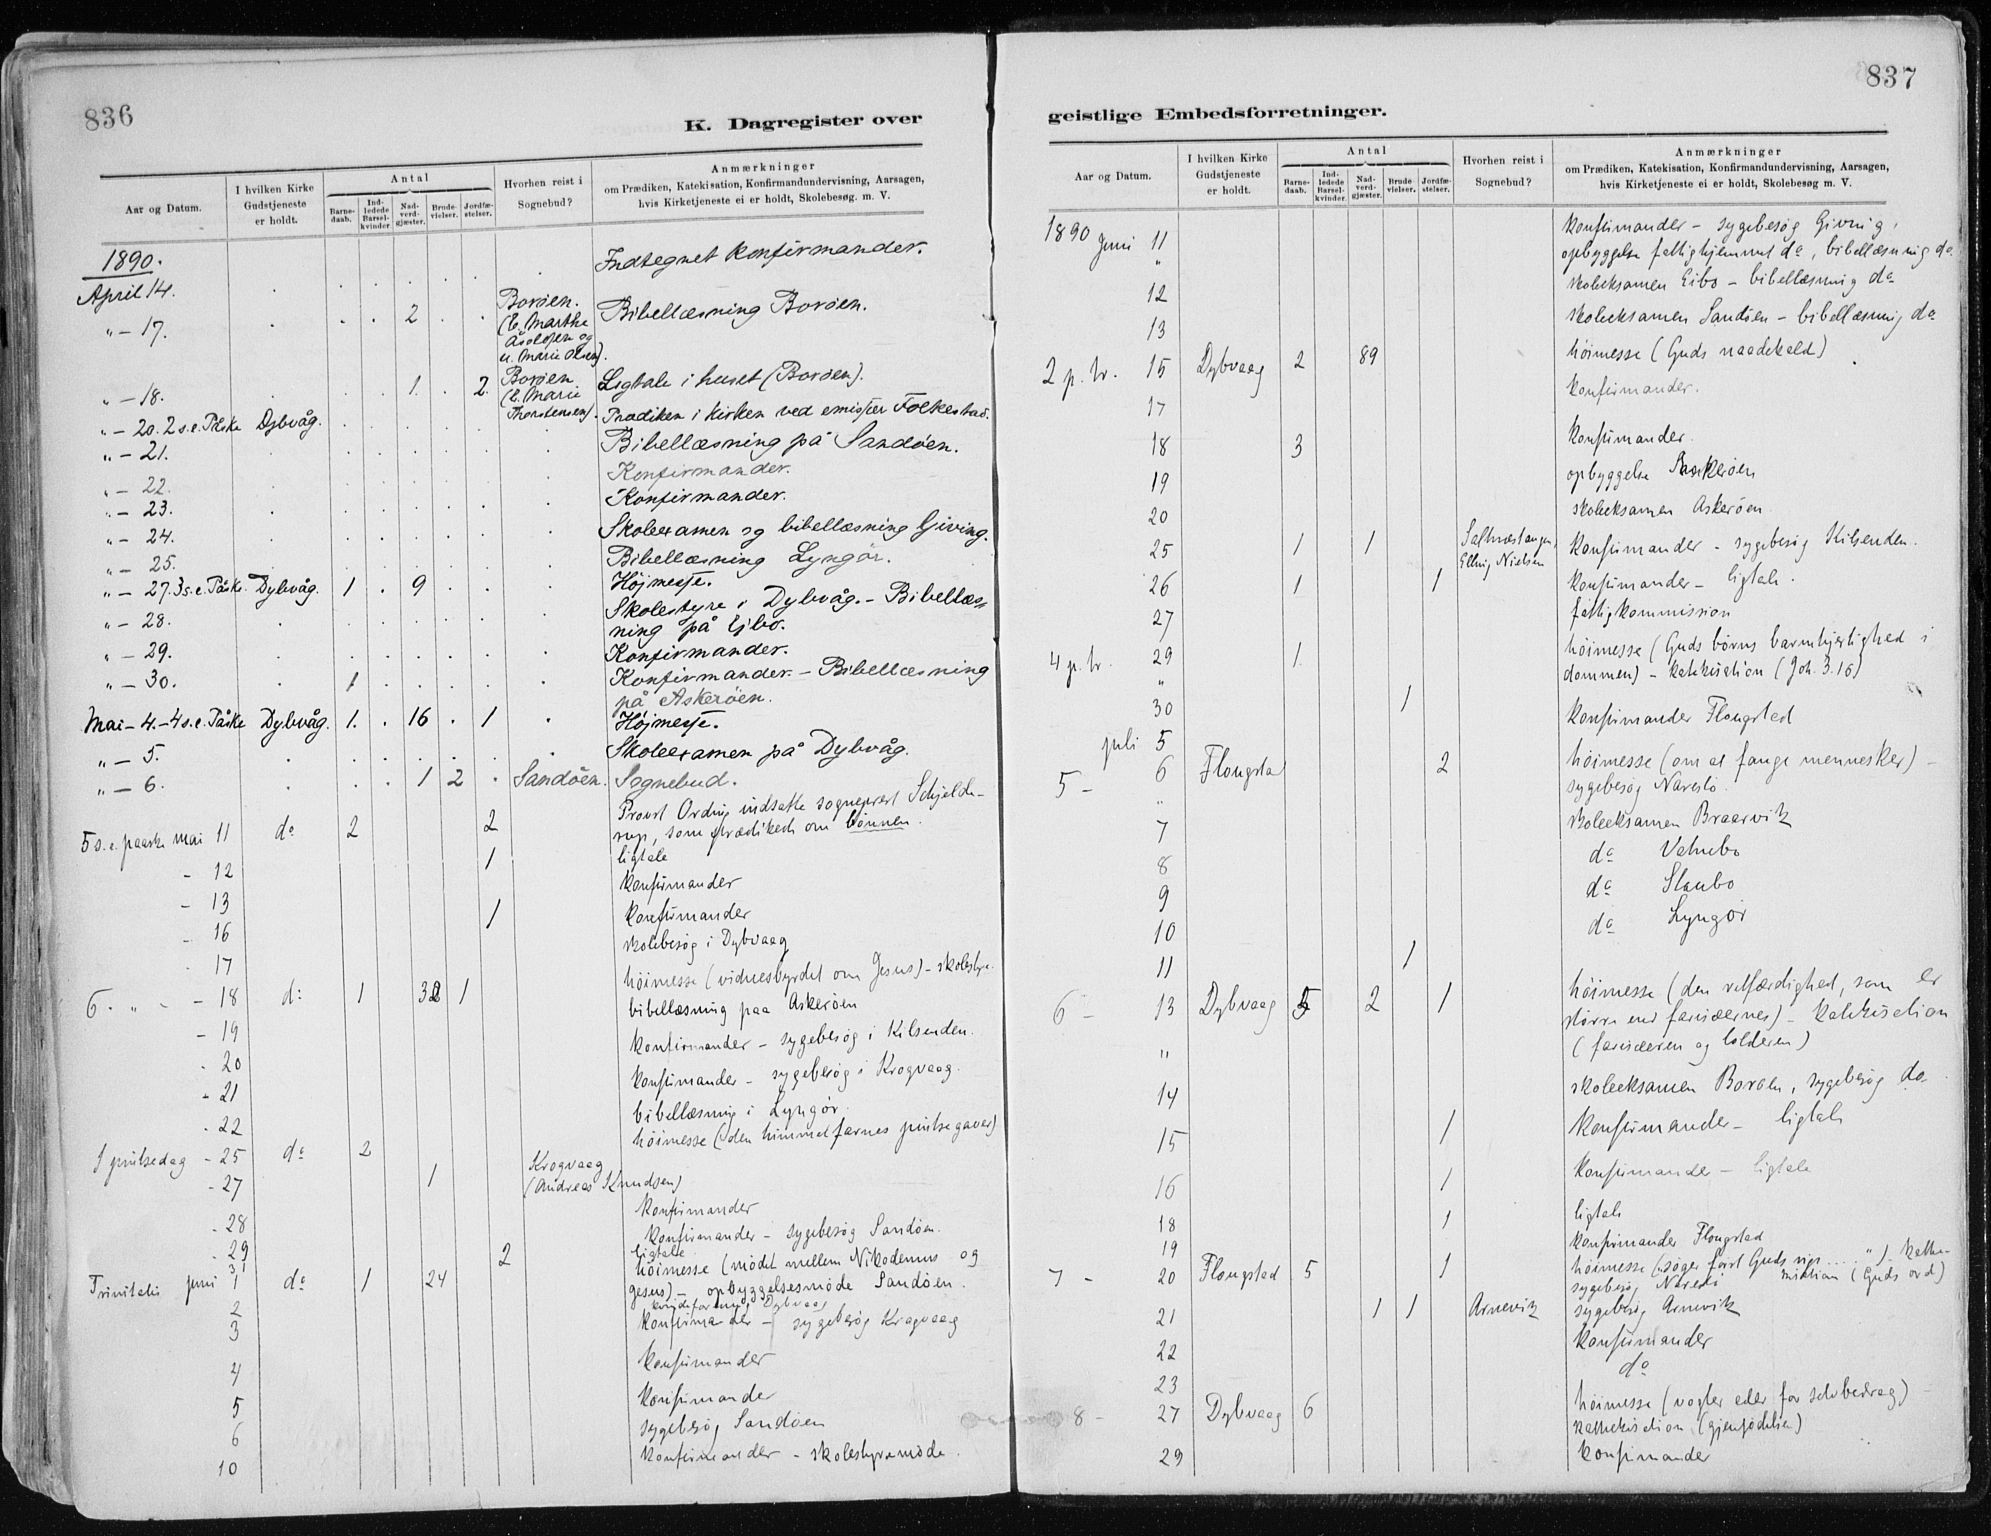 836
K. Dagregister over
Aar og Datum.
I hvilken Kirke Gudstjeneste er holdt.
Antal
Barnedaab.
Indledede Barselkvinder.
Nadverdgjæster.
Brudevielser.
Jordfæstelser.
Hvorhen reist i Sognebud?
Anmærkninger
om Prædiken, Katekisation, Konfirmandundervisning, Aarsagen,
hvis Kirketjeneste ei er holdt, Skolebesøg m. V.
1890.
April 14. Indtegnet Konfirmander.
" - 17. 2 Borøen. (E. Marthe Asolofsen og u. Marie Olsen). Bibellæsning Borøen.
" - 18. 1. 2. Borøen (E. Marie Thorstensen). Ligtale i huset (Borøen).
" - 20. 2 s.e. Påske Dybvåg. Prædiken i Kirken ved emissær Folkestad.
" - 21. Bibellæsning på Sandøen.
" - 22. Konfirmander.
" - 23. Konfirmander.
" - 24. Skoleexamen og bibellæsning Giving.
" - 25. Bibellæsning Lyngør.
" - 27. 3 s.e. Påske Dybvåg. 1 9 Højmesse.
" - 28. Skolestyre i Dybvåg. - Bibellæs-
ning på Ejbo.
" - 29. Konfirmander.
" - 30. 1 Konfirmander. - Bibellæsning
på Askerøen.
Mai - 4. - 4 s.e. Påske Dybvåg. 1. 16 1 Højmesse.
" - 5. Skoleexamen på Dybvåg.
" - 6. 1 2 Sandöen. Sognebud.
5 s.e. paaske mai 11 do 2 2 Provst Ording indsatte sogneprest Schjelde-
rup, som prædikede om bønnen.
- 12 1 ligtale
konfirmander
- 13 1 konfirmander
- 16 skolebesøg i Dybvaag
- 17
6 " " - 18 do 1 32 1 höimesse (vidnesbyrdet om Jesus) - skolestyre.
- 19 bibellæsning paa Askerøen
- 20 konfirmander - sygebesøg i Kilsenden.
- 21 konfirmander - sygebesøg i Krogvaag.
- 22 bibellæsning i Lyngør.
1 pintsedag - 25 do 2 höimesse (den himmelfarnes pintsegaver)
- 27 1 Krogvaag (Andreas Knudsen)
- 28 konfirmander
- 29 konfirmander - sygebesøg Sandøen.
31 2 ligtale
Trinitatis juni 1 do 1 24 höimesse (mödet mellem Nikodemus og
Jesus) - opbyggelsesmöde Sandöen.
2 Dybvaag
3 konfirmander - sygebesøg Krogvaag
4 konfirmander
5 konfirmander
6 sygebesøg Sandöen
10 konfirmander - skolestyremöde.
837
geistlige Embedsforretninger.
Aar og Datum.
I hvilken Kirke Gudstjeneste er holdt.
Antal
Barnedaab.
Indledede Barselkvinder.
Nadverdgjæster.
Brudevielser.
Jordfæstelser.
Hvorhen reist i Sognebud?
Anmærkninger
om Prædiken, Katekisation, Konfirmandundervisning, Aarsagen,
hvis Kirketjeneste ei er holdt, Skolebesøg m. V.
1890 Juni 11 konfirmander - sygebesøg Givnig,
" opbyggelse fattighjemmet do, bibellæsning do
12 skoleeksamen Eibo - bibellæsning do
13 skoleeksamen Sandöen - bibellæsning do
2 p. tr. 15 Dybvaag 2 89 höimesse (Guds naadekald)
17 konfirmander.
18 3 konfirmander.
19 opbyggelse Askerøen
20 skoleeksamen Askerøen
25 1 1 Saltnæstangen, Elling Nielsen konfirmander - sygebesøg Kilsenden.
26 1 1 konfirmander - ligtale.
27 fattigkommission
4 p. tr. 29 1. höimesse (Guds börns barmhjertighed i
" dommen) - katekisation (Joh. 3.16)
30 1
juli 5 konfirmander Flougstad
5 - 6 Flougstad 2 höimesse (om at fange mennesker) -
" sygebesøg Narestö.
7 skoleeksamen Braarvik
8 do Vatnebo
9 do Staubo
10 do Lyngör
11 1
6 - 13 Dybvaag 5 2 1 höimesse (den retfærdighed, som er
större end farisæernes) - katekisation
" (farisæeren og tolderen)
14 skoleeksamen Boröen, sygebesøg do
15 1 konfirmander - ligtale
16 1 konfirmander - ligtale
18 1 ligtale
19 konfirmander Flougstad
7 - 20 Flougstad 5 1 höimesse (söger först Guds rige ....") katke-
sygebesøg Narestö kisation (Guds ord)
21 1 1 Arnevik sygebesøg Arnevik
22 konfirmander
23 do
8 - 27 Dybvaag 6 höimesse (vogter eder for selvbedrag) -
katekisation (gjenfödelsen)
29 konfirmander